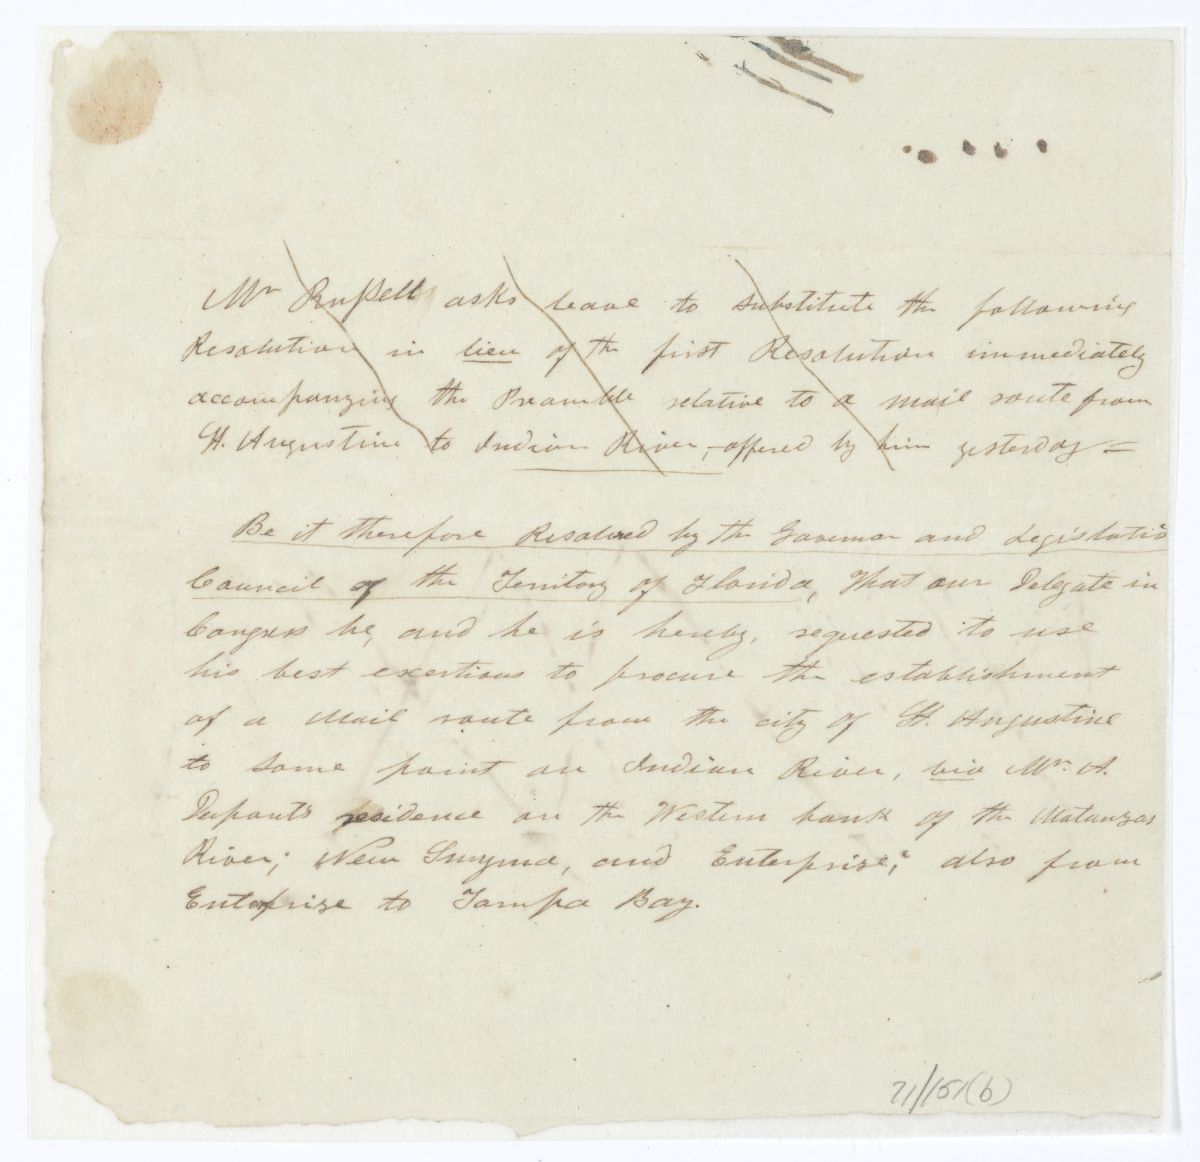 Mr Russell asks leave to substitute the following
Resolution in lieu of the first Resolution immediately
accompanying the Preamble relative to a mail route from
St. Augustine to Indian River, offered by him yesterday =
Be it therefore Resolved by the Governor and Legislative
Council of the Territory of Florida, That our Delegate in
Congress be, and he is hereby, requested to use
his best exertions to procure the establishment
of a Mail route from the city of St. Augustine
to some point on Indian River, via Mr. A.
Dupont's residence on the Western bank of the Matanzas
River; New Smyrna, and Enterprise; also from
Enterprise to Tampa Bay.
21/151(b)